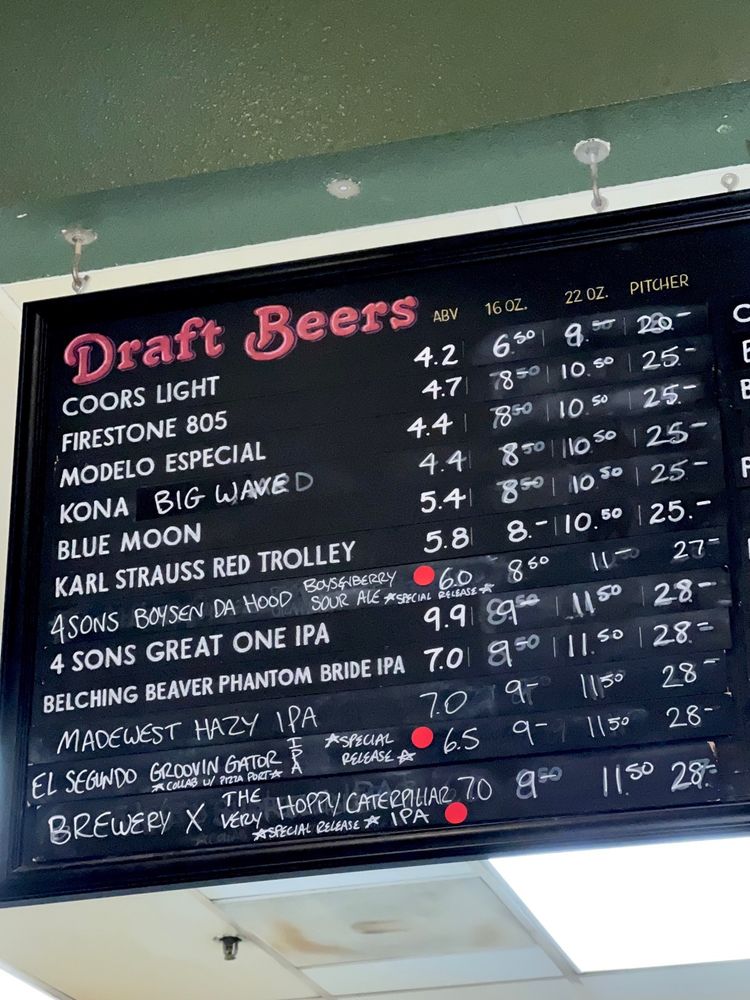 Draft Beers ABV 16 OZ. 22 OZ. PITCHER
COORS LIGHT 4.2 6.50 9.50 20-
FIRESTONE 805 4.7 8.50 10.50 25.-
MODELO ESPECIAL 4.4 8.50 10.50 25.-
KONA BIG WAVE 4.4 8.50 10.50 25-
BLUE MOON 5.4 8.50 10.50 25-
KARL STRAUSS RED TROLLEY 5.8 8.- 10.50 25.-
4SONS BOYSEN DA HOOD BOYSENBERRY SOUR ALE ☆SPECIAL RELEASE☆ 6.0 8.50 11- 27-
4 SONS GREAT ONE IPA 9.9 9.50 11.50 28-
BELCHING BEAVER PHANTOM BRIDE IPA 7.0 9.50 11.50 28-
MADEWEST HAZY IPA 7.0 9- 11.50 28-
EL SEGUNDO GROOVIN GATOR IPA ☆COLLAB W/ PIZZA PORT☆ ☆SPECIAL RELEASE☆ 6.5 9- 11.50 28-
BREWERY X THE VERY HOPPY CATERPILLAR IPA ☆SPECIAL RELEASE☆ 7.0 9.50 11.50 28-